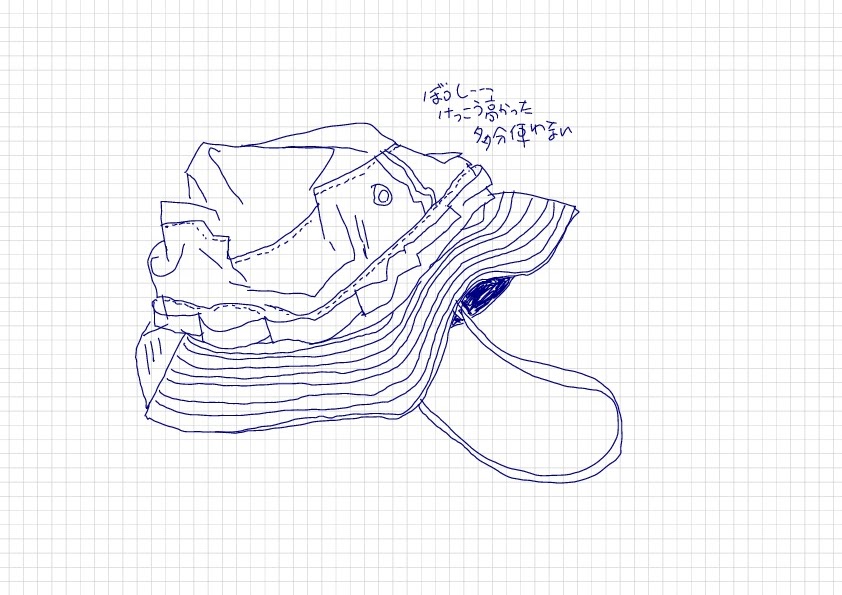 ぼうしーー
けっこう高かった
多分使わない